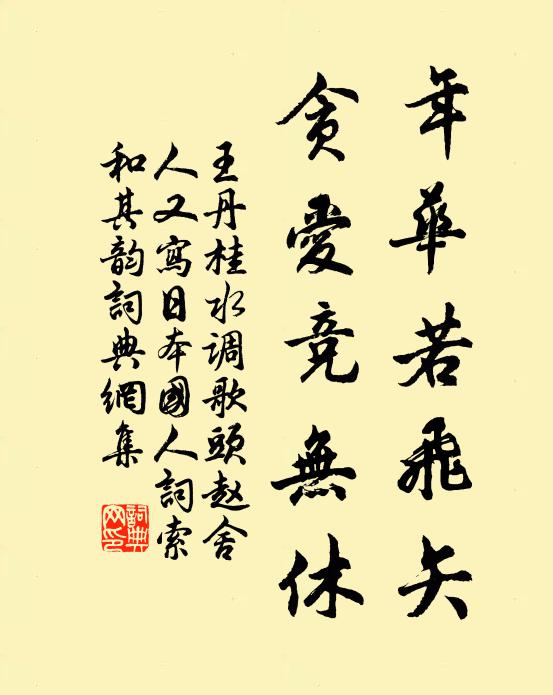 年華若飛矢
貪愛竞無休
王丹桂水调歌頭赵舍
人又寫日本國人詞索
和其韵詞典網集
詞典网印